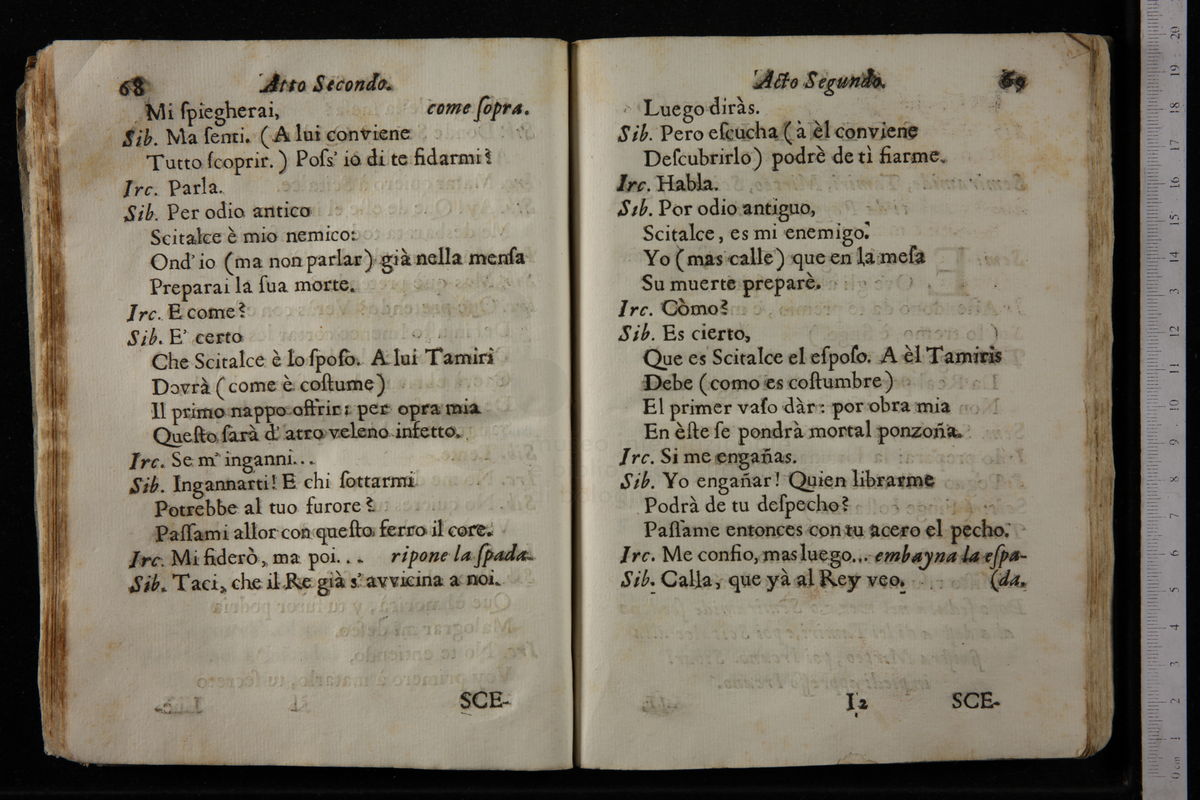 68 Atto Secondo.
Mi ſpiegherai, come ſopra.
Sib. Ma ſenti. (A lui conviene
Tutto ſcoprir.) Poſs' io di te fidarmi?
Irc. Parla.
Sib. Per odio antico
Scitalce è mio nemico:
Ond' io (ma non parlar) già nella menſa
Preparai la ſua morte.
Irc. E come?
Sib. E' certo
Che Scitalce è lo ſpoſo. A lui Tamiri
Dovrà (come è coſtume)
Il primo nappo offrir: per opra mia
Queſto ſarà d' atro veleno infetto.
Irc. Se m' inganni...
Sib. Ingannarti! E chi ſottarmi
Potrebbe al tuo furore?
Paſſami allor con queſto ferro il core.
Irc. Mi fiderò, ma poi... ripone la ſpada.
Sib. Taci, che il Re già s' avvicina a noi.
SCE-
Acto Segundo. 69
Luego diràs.
Sib. Pero eſcucha (à èl conviene
Deſcubrirlo) podrè de tì fiarme.
Irc. Habla.
Sib. Por odio antiguo,
Scitalce, es mi enemigo:
Yo (mas calle) que en la meſa
Su muerte preparè.
Irc. Còmo?
Sib. Es cierto,
Que es Scitalce el eſpoſo. A èl Tamiris
Debe (como es coſtumbre)
El primer vaſo dàr: por obra mia
En èſte ſe pondrà mortal ponzoña.
Irc. Si me engañas.
Sib. Yo engañar! Quien librarme
Podrà de tu deſpecho?
Paſſame entonces con tu acero el pecho.
Irc. Me confio, mas luego... embayna la eſpa-
Sib. Calla, que yà al Rey veo. (da.
I2 SCE-